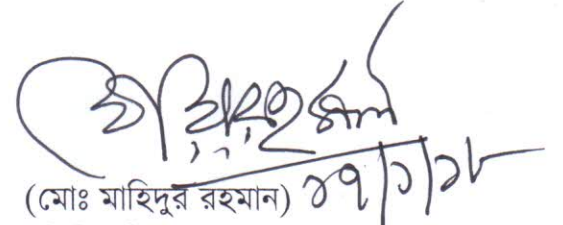 (মোঃ মাহিদুর রহমান) ১৭/১/১৮